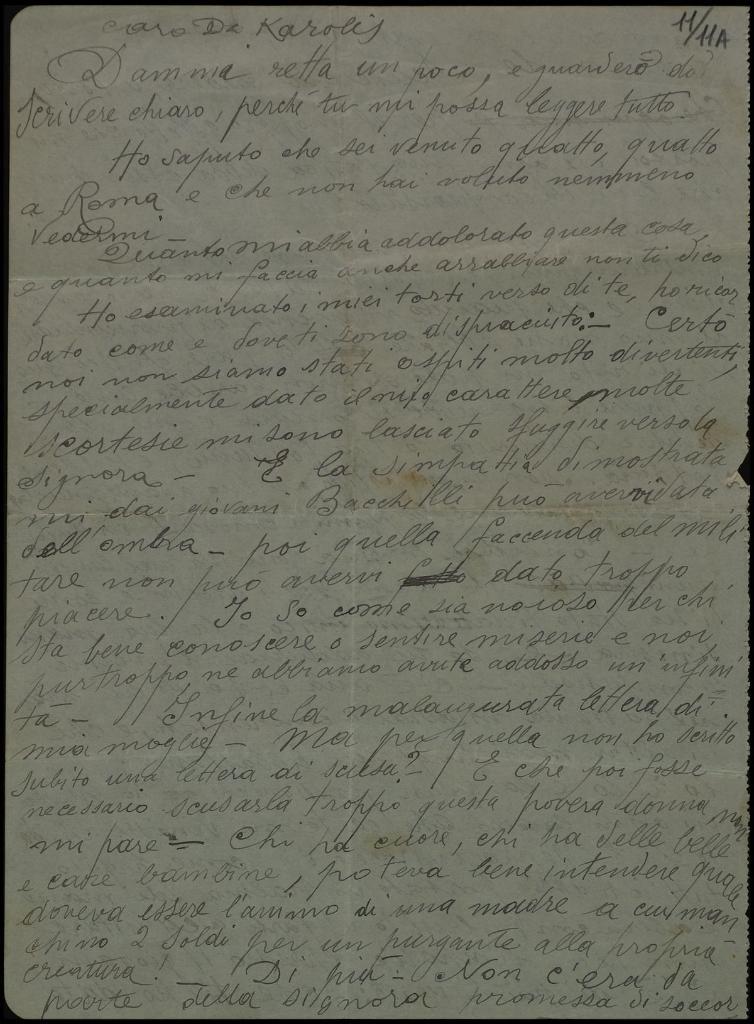 11/11A
caro De Karolis
Dammi retta un poco, e guarderò di
scrivere chiaro, perché tu mi possa leggere tutto.
Ho saputo che sei venuto quatto, quatto
a Roma e che non hai voluto nemmeno
vedermi –
Quanto mi abbia addolorato questa cosa,
e quanto mi faccia anche arrabbiare non ti dico
Ho esaminato i miei torti verso di te, ho ricor
dato come e dove ti sono dispiaciuto: – Certo
noi non siamo stati ospiti molto divertenti,
specialmente dato il mio carattere, molte
scortesie mi sono lasciato sfuggire verso la
signora – E la simpattia dimostrata
mi dai giovani Bacchelli può avervi data
dell'ombra – poi quella faccenda del mili
tare non può avervi dato troppo
piacere. Io so come sia noioso per chi
sta bene conoscere o sentire miserie e noi,
purtroppo, ne abbiamo avute addosso un'infini
tà – Infine la malaugurata lettera di
mia moglie – Ma per quella non ho scritto
subito una lettera di scusa? – E che poi fosse
necessario scusarla troppo questa povera donna, non
mi pare – Chi ha cuore, chi ha delle belle
e care bambine, poteva bene intendere quale
doveva essere l'animo di una madre a cui man
chino 2 soldi per un purgante alla propria
creatura! – Di più – Non c'era da
parte della signora promessa di soccor